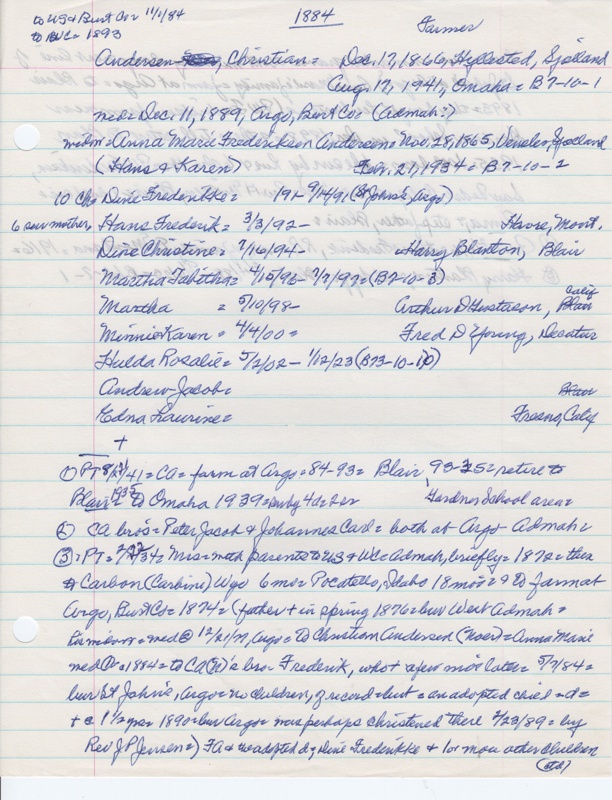 to US & Burt Co = 11/1/84
to WC = 1893
1884
Farmer
Andersen, Christian = Dec. 17, 1866, Hyllested, Sjælland
Aug. 17, 1941, Omaha = B7-10-1
med = Dec. 11, 1889, Argo, Burt Co = (Admah?)
Anna Marie Frederikson Andersen = Nov. 28, 1865, Sjælland
(Hans & Karen) Feb. 21, 1934 = B7-10-2
10 Ch = Dine Frederikke = 191- 9/14/91 (St John's, Argo)
6 surv mother = Hans Frederik = 3/3/92 - Havre, Mont.
Dine Christine = 7/16/94 - Harry Blanton, Blair
Martha Tabitha = 4/15/96 - 7/7/97 = (B7-10-3)
Martha = 5/10/98 - Arthur D Gustavson, Blair Calif
Minnie Karen = 4/4/00 = Fred D Young, Decatur
Hulda Rosalie = 5/2/02 - 1/12/23 (B73-10-10)
Andrew Jacob = Blair
Edna Laurine = Fresno, Calif
+
(1) PT 8/21/41 = CA = farm at Argo = 84-93 = Blair, 93-35 = retire to
Blair = 1935 to Omaha 1939 = surv by 4 d & 2 s = Gardner School area =
(2) CA bros = Peter Jacob & Johannes Carl = both at Argo-Admah =
(3) = PT = 2/22/34 = Mrs = with parents to US & WC = Admah, briefly = 1872 = then
to Carbon (Carbini) Wyo 6 mos = Pocatello, Idaho 18 mos = & to farm at
Argo, Burt Co = 1874 = (father + in spring 1876 = bur West Admah =
med @ 12/11/89, Argo = to Christian Andersen (Noer) = Anna Marie
med (1) = 1884 = to CA(N)'s bro = Frederik, who + a few mos later = 5/7/84 =
bur St John's, Argo = no children, of record = but = an adopted child = d =
+ @ 1 1/2 yrs = 1890 = bur Argo = was perhaps christened there 2/23/89 = by
Rev J P Jensen =) FA & w adopted d = Dine Frederikke & 1 or more other children
(ctd)